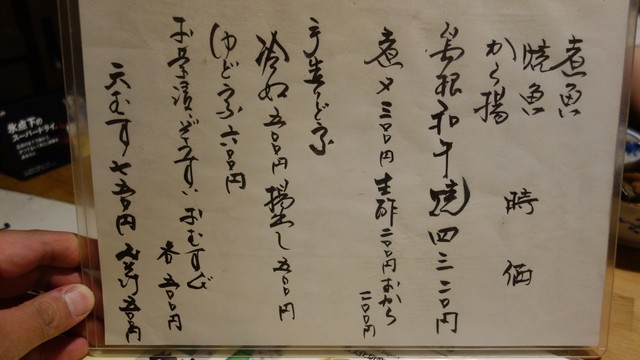 煮魚
焼魚
から揚
時価
島根和牛焼四二〇〇円
煮〆三〇〇円 生酢二〇〇円 おから二〇〇円
手造りどうふ
冷奴五〇〇円 揚出し五〇〇円
ゆどうふ六〇〇円
お茶漬 ぞうすい おむすび
各五〇〇円
天むす七五〇円
五〇〇円
氷点下の
スーパードライ。